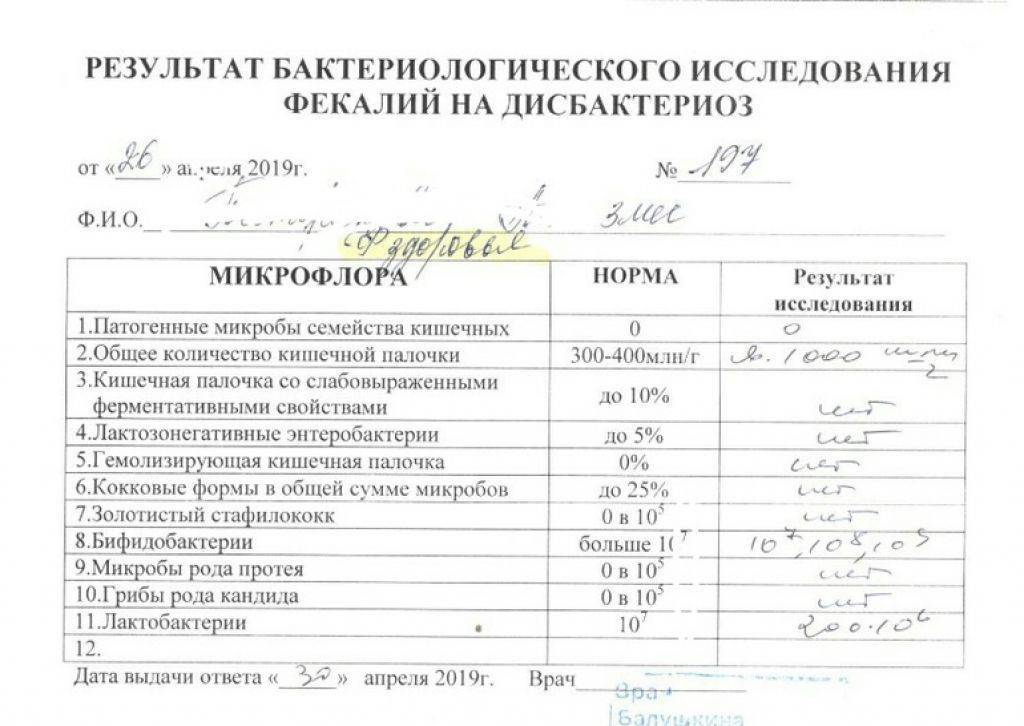 РЕЗУЛЬТАТ БАКТЕРИОЛОГИЧЕСКОГО ИССЛЕДОВАНИЯ
ФЕКАЛИЙ НА ДИСБАКТЕРИОЗ
от «26» апреля 2019г. № 197
Ф.И.О. 3 мес
здоровье
МИКРОФЛОРА НОРМА Результат
исследования
1.Патогенные микробы семейства кишечных 0 0
2.Общее количество кишечной палочки 300-400млн/г 1000 млн/г
3.Кишечная палочка со слабовыраженными
ферментативными свойствами до 10% нет
4.Лактозонегативные энтеробактерии до 5% нет
5.Гемолизирующая кишечная палочка 0% нет
6.Кокковые формы в общей сумме микробов до 25% нет
7.Золотистый стафилококк 0 в 10⁵ нет
8.Бифидобактерии больше 10⁷ 10⁷,10⁸,10⁹
9.Микробы рода протея 0 в 10⁵ нет
10.Грибы рода кандида 0 в 10⁵ нет
11.Лактобактерии 10⁷ 200·10⁶
12.
Дата выдачи ответа «30» апреля 2019г. Врач
Вра
Балушкина